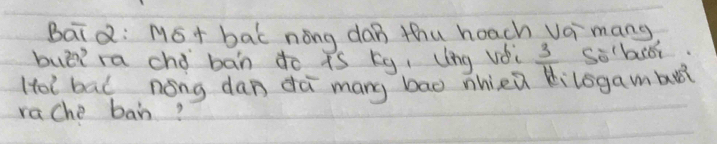 Bài 2: Một bác nông dân thu hoạch và mang
bưởi ra chợ bán đc 75 kg, ứng với 3 số bưởi.
Hỏi bác nông dân đã mang bao nhiêu kilogam bưởi
ra chợ bán?